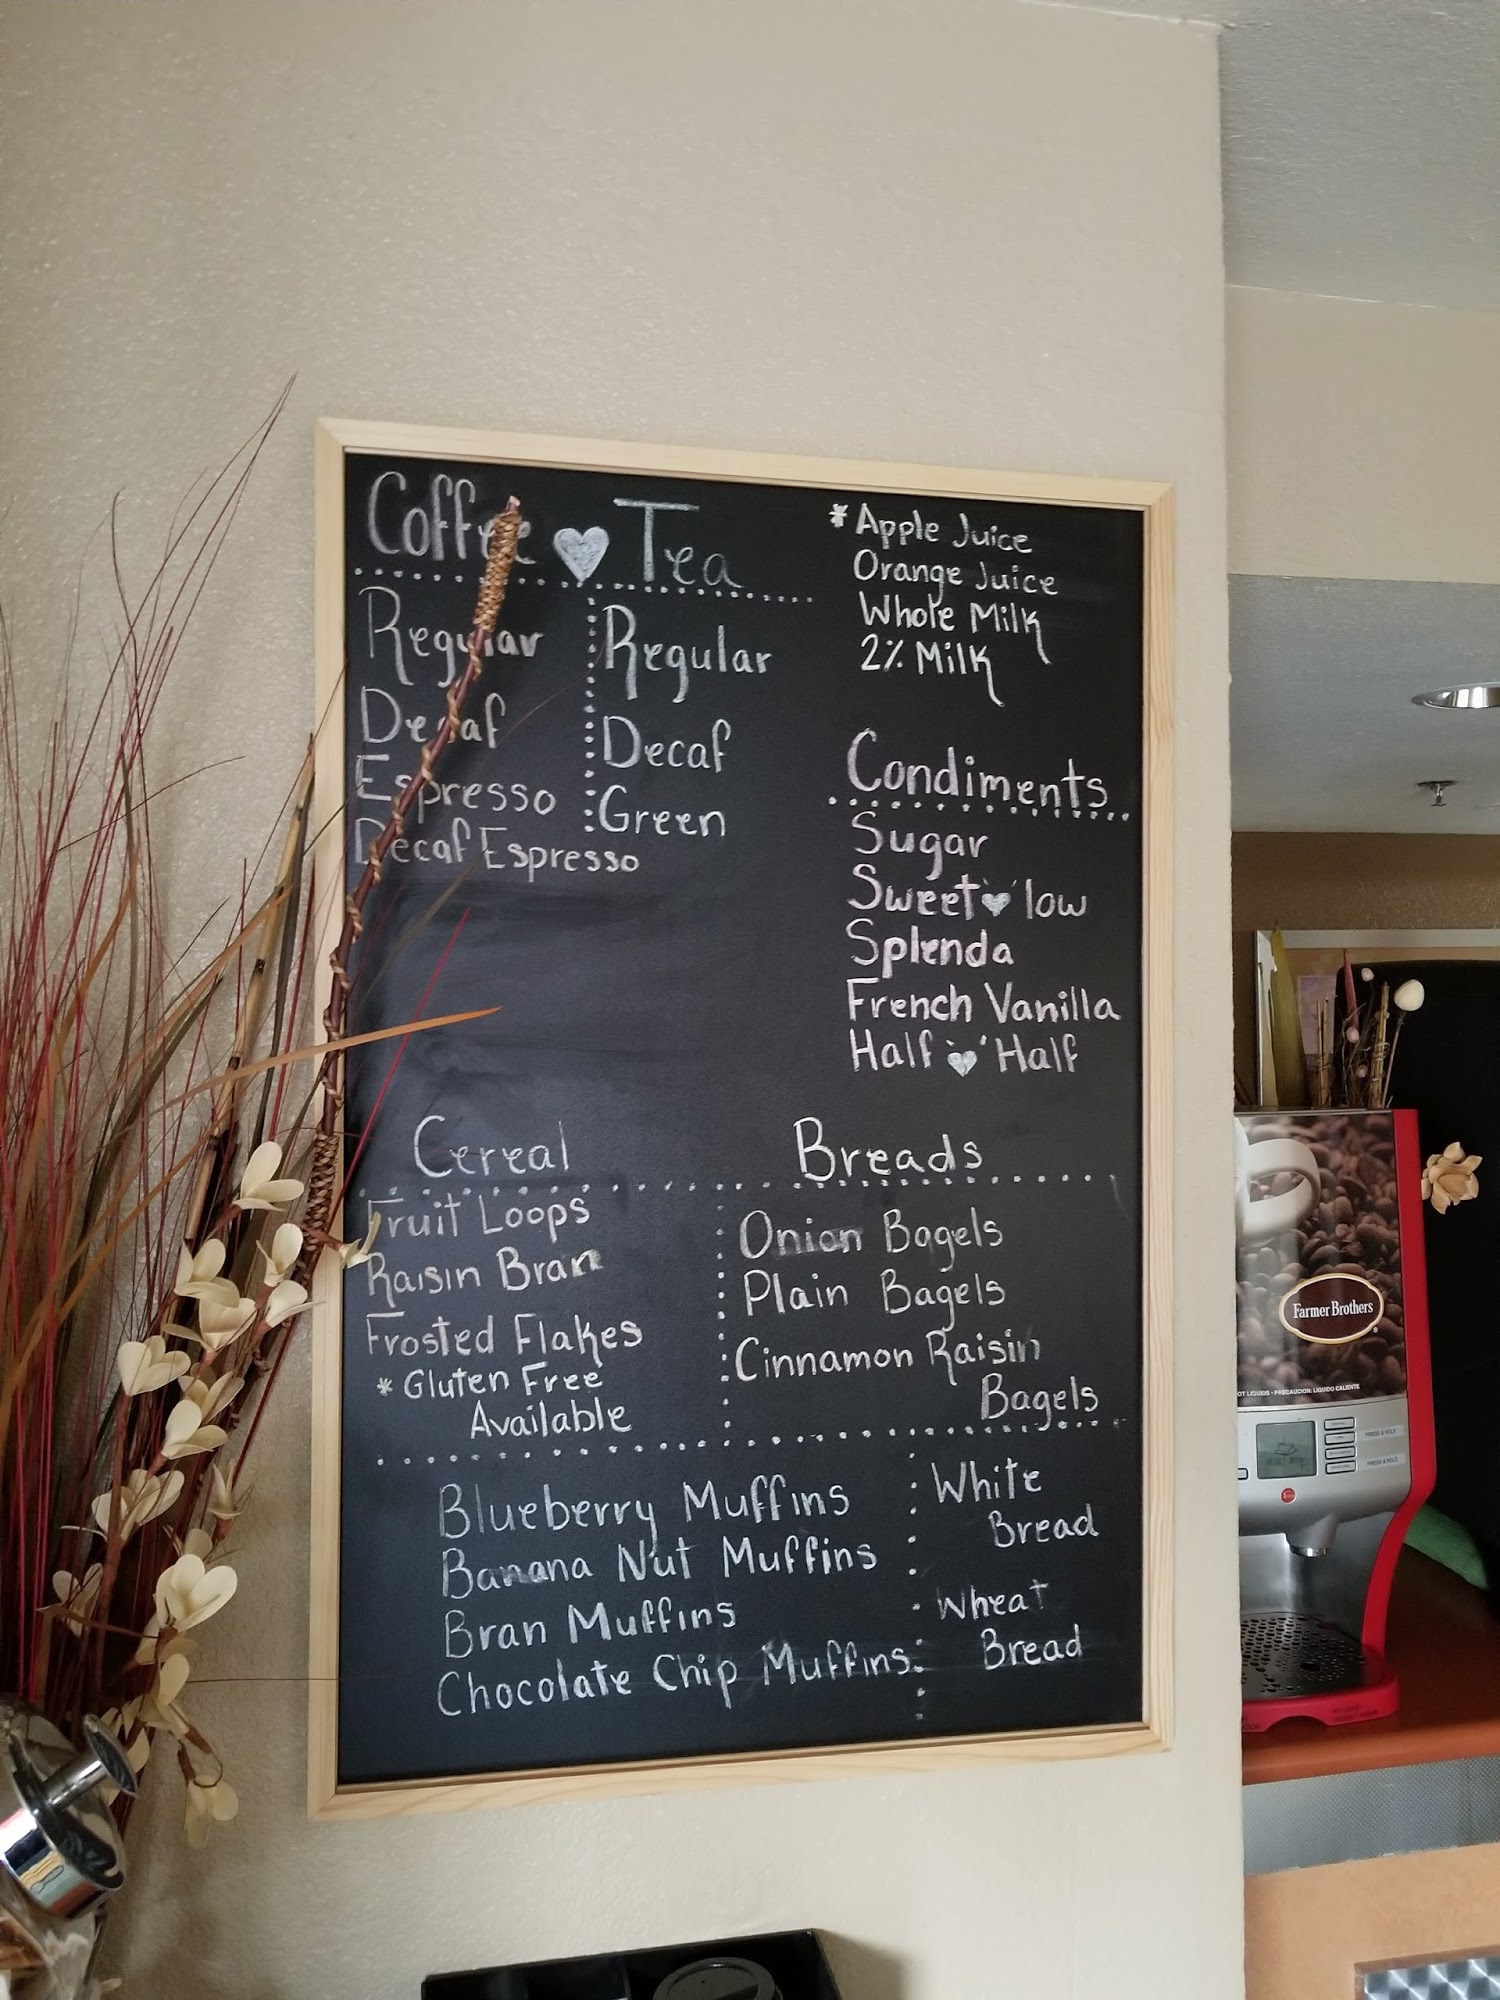 Coffee ♥ Tea
Regular
Decaf
Espresso
Decaf Espresso
Regular
Decaf
Green
* Apple Juice
Orange Juice
Whole Milk
2% Milk
Condiments
Sugar
Sweet ♥ low
Splenda
French Vanilla
Half ♥ Half
Cereal
Fruit Loops
Raisin Bran
Frosted Flakes
* Gluten Free
Available
Breads
Onion Bagels
Plain Bagels
Cinnamon Raisin
Bagels
Blueberry Muffins
Banana Nut Muffins
Bran Muffins
Chocolate Chip Muffins
White
Bread
Wheat
Bread
Farmer Brothers
OT LIQUIDS • PRECAUCION: LIQUIDO CALIENTE
PRESS & HOLD
PRESS & HOLD